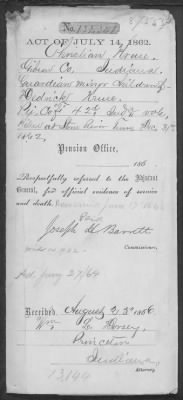 No. 132,501
ACT OF JULY 14, 1862.
Christian Kruse
Gibson Co, Indiana
Guardian Minor Children
Hedrick Kruse
Co 42d Ind Vols
Killed at Stone River Tenn Dec 31st
1862.
Pension Office,
186
Respectfully referred to the Adjutant
General, for official evidence of service
and death.
Joseph H Barrett
Commissioner.
Received, August 23d 1866
Wm. Dorsey,
Princeton
Indiana,
Attorney.
13144